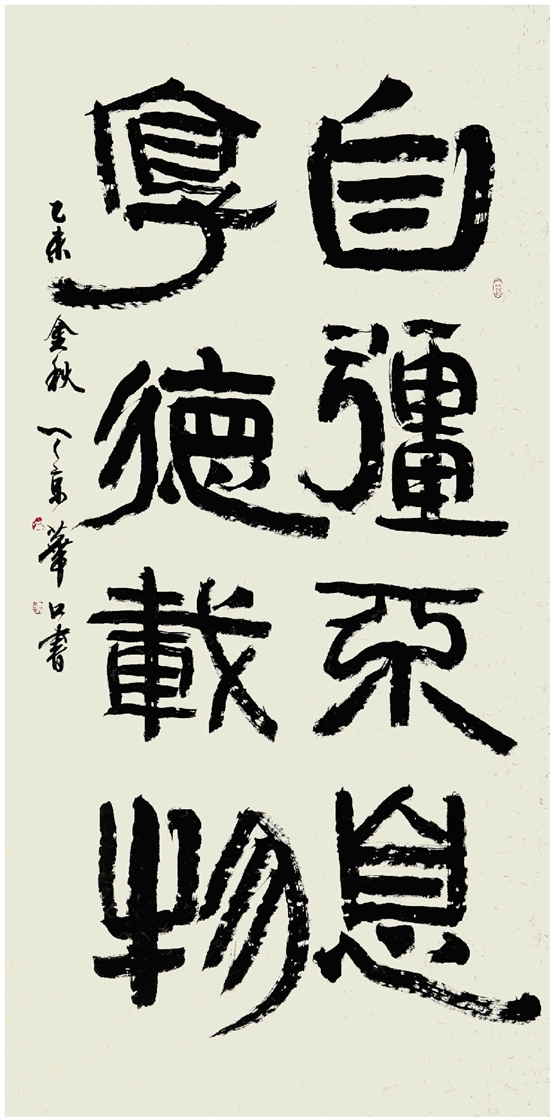 自彊不息
厚德載物
乙未金秋 京華 書